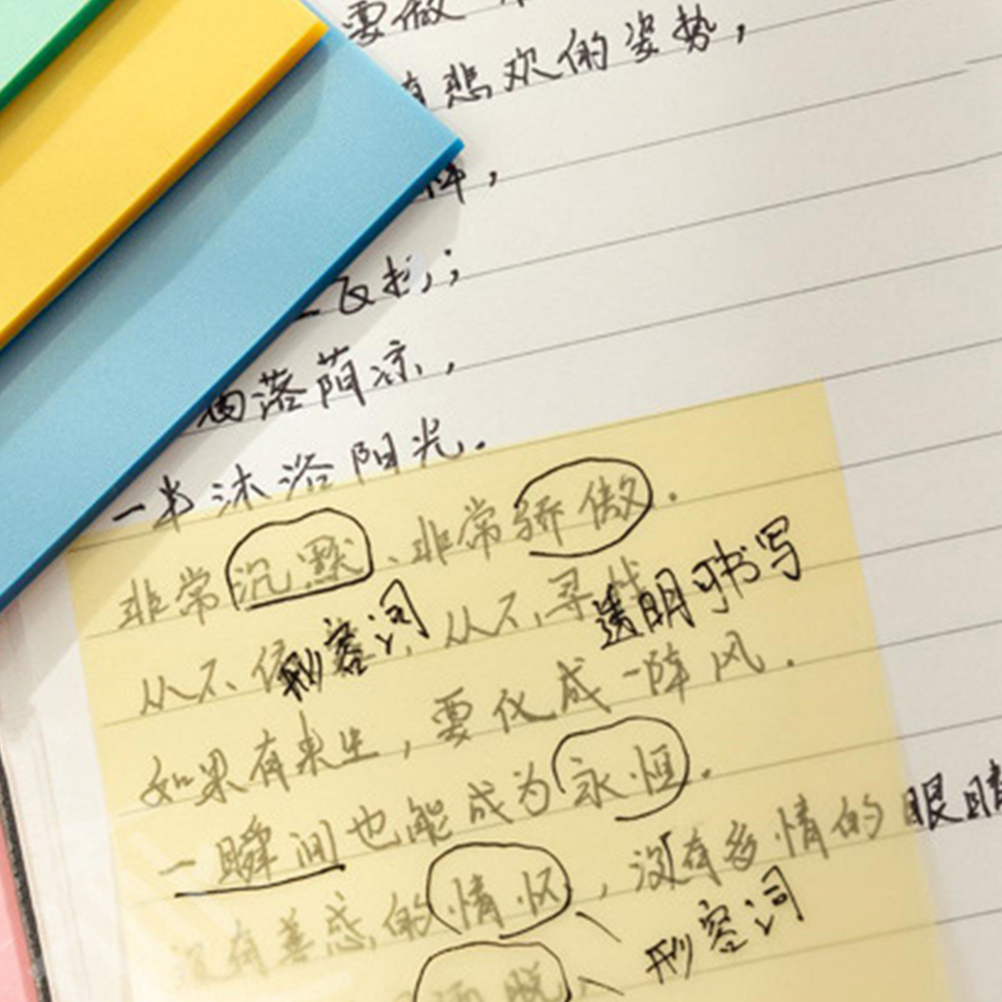 要做
悲欢的姿势，
飞扬；
洒落荫凉，
一半沐浴阳光．
非常沉默、非常骄傲．
形容词
透明可书写
从不依 ，从不寻找
如果有来生，要化成一阵风．
一瞬间也能成为永恒．
没有善感的情怀，没有多情的眼睛
形容词
洒脱